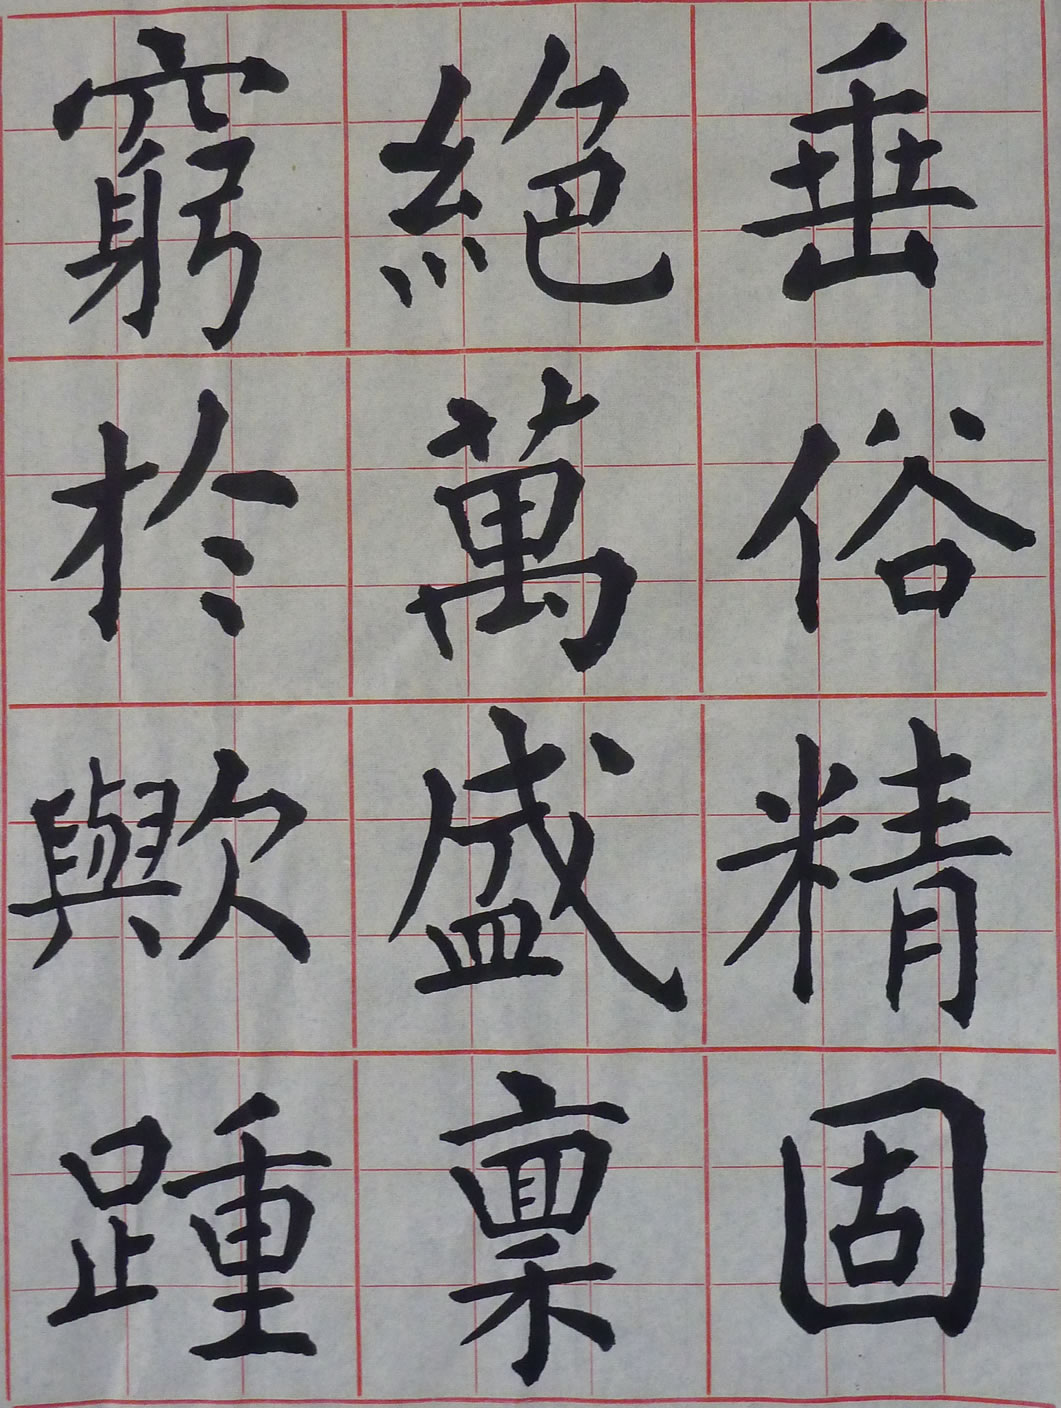 垂俗精固
絕萬盛稟
窮於歟踵